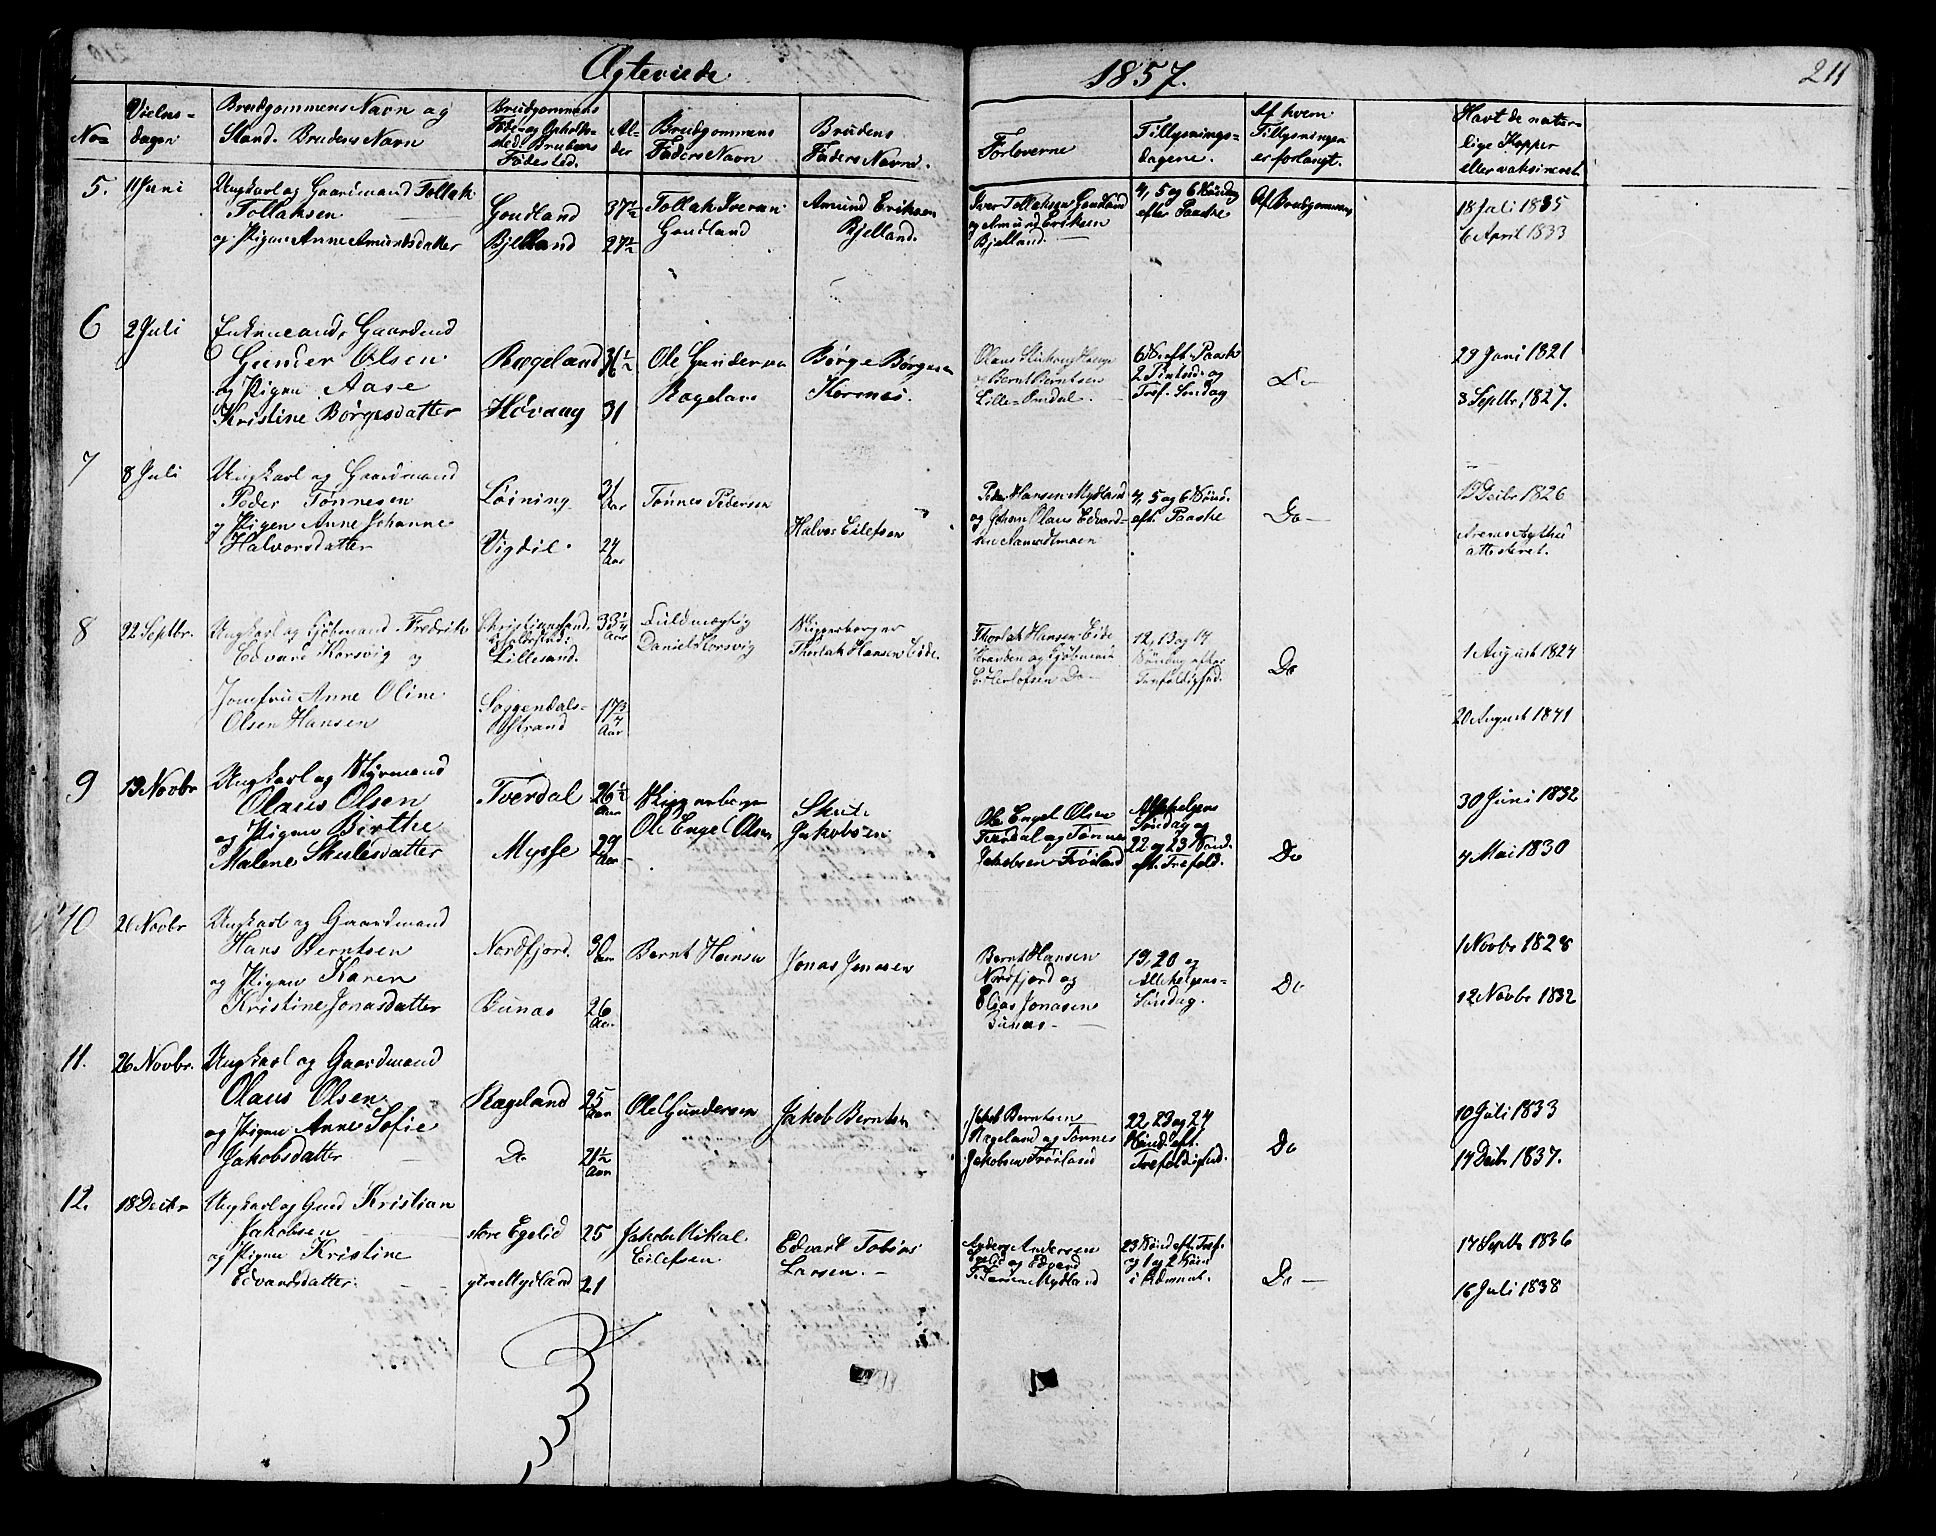 Ægteviede
1857.
211
No
Vielses-
dagen
Brudgommens Navn og
Stand. Brudens Navn
Brudgommens
Føde- og Opholds-
sted. Brudens
Fødested.
Al-
der
Brudgommens
Faders Navn
Brudens
Faders Navn.
Forloverne
Tillysnings-
dagene.
Af hvem
Tillysningen
er forlangt.
Havt de natur-
lige Kopper
eller vaksineret
5.
11 Juni
Ungkarl og Gaardmand Tollak
Tollaksen
og Pigen Anne Amundsdatter
Goudland
Bjelland
37½
27½
Tollak Iversen
Goudland
Amund Eriksen
Bjelland.
Iver Tollaksen Goudland
og Amund Eriksen
Bjelland.
4, 5 og 6 Søndag
efter Paaske
Af Brudgommen
18 Juli 1835
6 April 1833
6
2 Juli
Enkemand, Gaardmd
Gunder Olsen
og Pigen Aase
Kristine Børgesdatter
Rægeland
Høvaag
36½
31
Ole Gundersen
Rægeland
Børge Børgesen
Kornæs.
og Bernt Berntsen
Lille-Omdal.
6 S. eft. Paaske
2 Pintsed. og
Tref. Søndag
Do
29 Juni 1821
3 Septbr. 1827.
7
8 Juli
Ungkarl og Gaardmand
Peder Tønnesen
og Pigen Anne Johanne
Halvorsdatter
Løining
Vigdil.
31
Aar
24
Aar
Tønnes Pedersen
Halvor Eilefsen
Peder Hansen Mydland
og Johan Olaus Edvard-
sen Aamodtmoen
4, 5 og 6 Sønd.
eft. Paaske
Do
19 Decbr 1826
attesteret.
8
22 Septbr.
Ungkarl og Kjøbmand Fredrik
Edvard Korsvig og
Jomfru Anne Oline
Olsen Hansen
Christianssand,
Opholdssted:
Lillesand.
Soggendals-
Strand
33¼
Aar
17¾
Aar
Fuldmægtig
Daniel Korsvig
Skippersborger
Thorlak Hansen Eide.
Thorlak Hansen Eide
Stranden og Kjøbmand
E. Olertofsen Do
12, 13 og 14
Søndag efter
Trefoldighed.
Do
1 August 1824
20 August 1841
9
19 Novbr
Ungkarl og Styrmand
Olaus Olsen
og Pigen Birthe
Malene Skulesdatter
Tverdal
Mysse
26½
Aar
29
Aar
Skipperborger
Ole Engel Olsen
Skule
Jakobsen
Ole Engel Olsen
Tverdal og Tønnes
Jakobsen Frøiland
Allehelgens
Søndag og
22 og 23 Sønd.
eft. Trefold.
Do
30 Juni 1832
4 Mai 1830
10
26 Novbr
Ungkarl og Gaardmand
Hans Berntsen
og Pigen Karen
Kristine Jonasdatter
Nordfjord.
Bunæs
30
Aar
26
Aar
Bernt Hansen
Jonas Jonasen
Bernt Hansen
Nordfjord og
Elias Jonasen
Bunæs
19, 20 og
Allehelgens-
Søndag.
Do
1 Novbr 1828
12 Novbr 1832
11.
26 Novbr.
Ungkarl og Gaardmand
Olaus Olsen
og Pigen Anne Sofie
Jakobsdatter
Rægeland
Do
25
Aar
21½
Aar
Ole Gundersen
Jakob Berntsen
Jakob Berntsen
Rægeland og Tønnes
Jakobsen Frøiland
22, 23 og 24
Sønd. eft.
Trefoldighed.
Do
10 Juli 1833
14 Decbr 1837.
12.
18 Decbr
Ungkarl og Gmd Kristian
Jakobsen
og Pigen Kristine
Edvardsdatter.
store Egelid
ytre Mydland
25
21
Jakob Mikal
Eilefsen
Edvart Tobias
Larsen.
Anders Andersen
Egelid og Edvard
Petersen Mydland
23 Sønd eft. Tref.
og 1 og 2 Sønd
i Advent.
Do
14 Septb 1836
16 Juli 1838